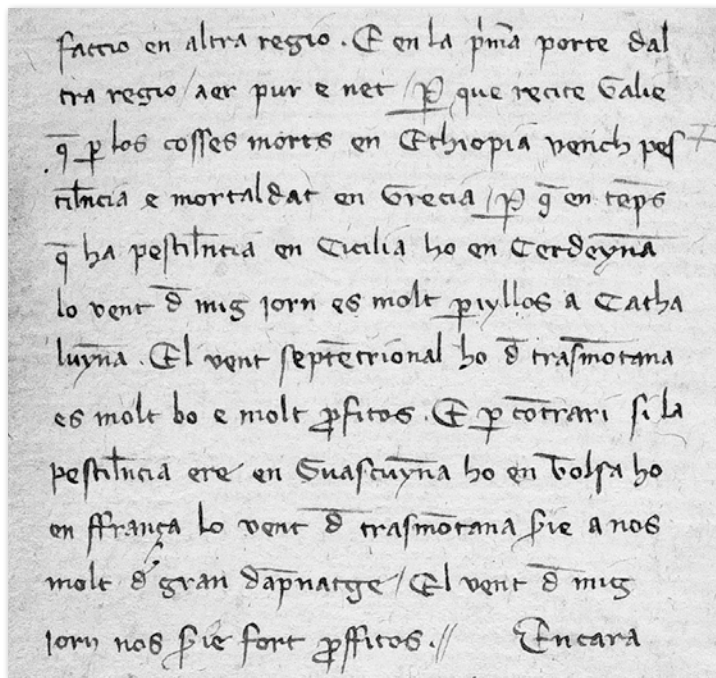 faccio en altra regio. E en la pͥma porte dal
tra regio / aer pur e net / ꝑ que recite Galie
q̄ ꝑ los cosses morts en Ethiopia vench pes
tiln̄cia e mortaldat en Grecia / ꝑ q̄ en tēps
q̄ ha pestiln̄cia en Cicilia ho en Cerdeyn̄a
lo vent d̄ mig jorn es molt ꝑiyllos a Catha
luyn̄a. El vent septēcrional ho d̄ trasmōtana
es molt bo e molt ꝓfitos. E ꝑ cōtrari si la
pestiln̄cia ere en Guascuyn̄a ho en Tolsa ho
en ffrança lo vent d̄ trasmōtana ẜie a nos
molt d̄ gran dap̄natge / El vent d̄ mig
jorn nos ẜie fort ꝓffitos. // Encara